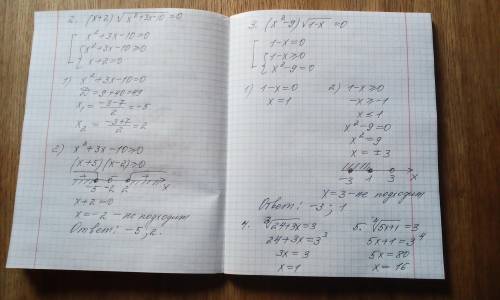 2. (x+2)√x²+3x-10=0
x²+3x-10=0
x²+3x-10≥0
x+2=0
1) x²+3x-10=0
D=9+40=49
x₁=(-3-7)/2=-5
x₂=(-3+7)/2=2
2) x²+3x-10≥0
(x+5)(x-2)≥0
+ - +
-5 -2 2 x
x+2=0
x=-2 - не подходит
Ответ: -5; 2.
3. (x²-9)√1-x=0
1-x=0
1-x≥0
x²-9=0
1) 1-x=0
x=1
2) 1-x≥0
-x≥-1
x≤1
x²-9=0
x²=9
x=±3
-3 1 3 x
x=3 - не подходит
Ответ: -3; 1
4. ³√24+3x=3
24+3x=3³
3x=3
x=1
5. ⁴√5x+1=3
5x+1=3⁴
5x=80
x=16